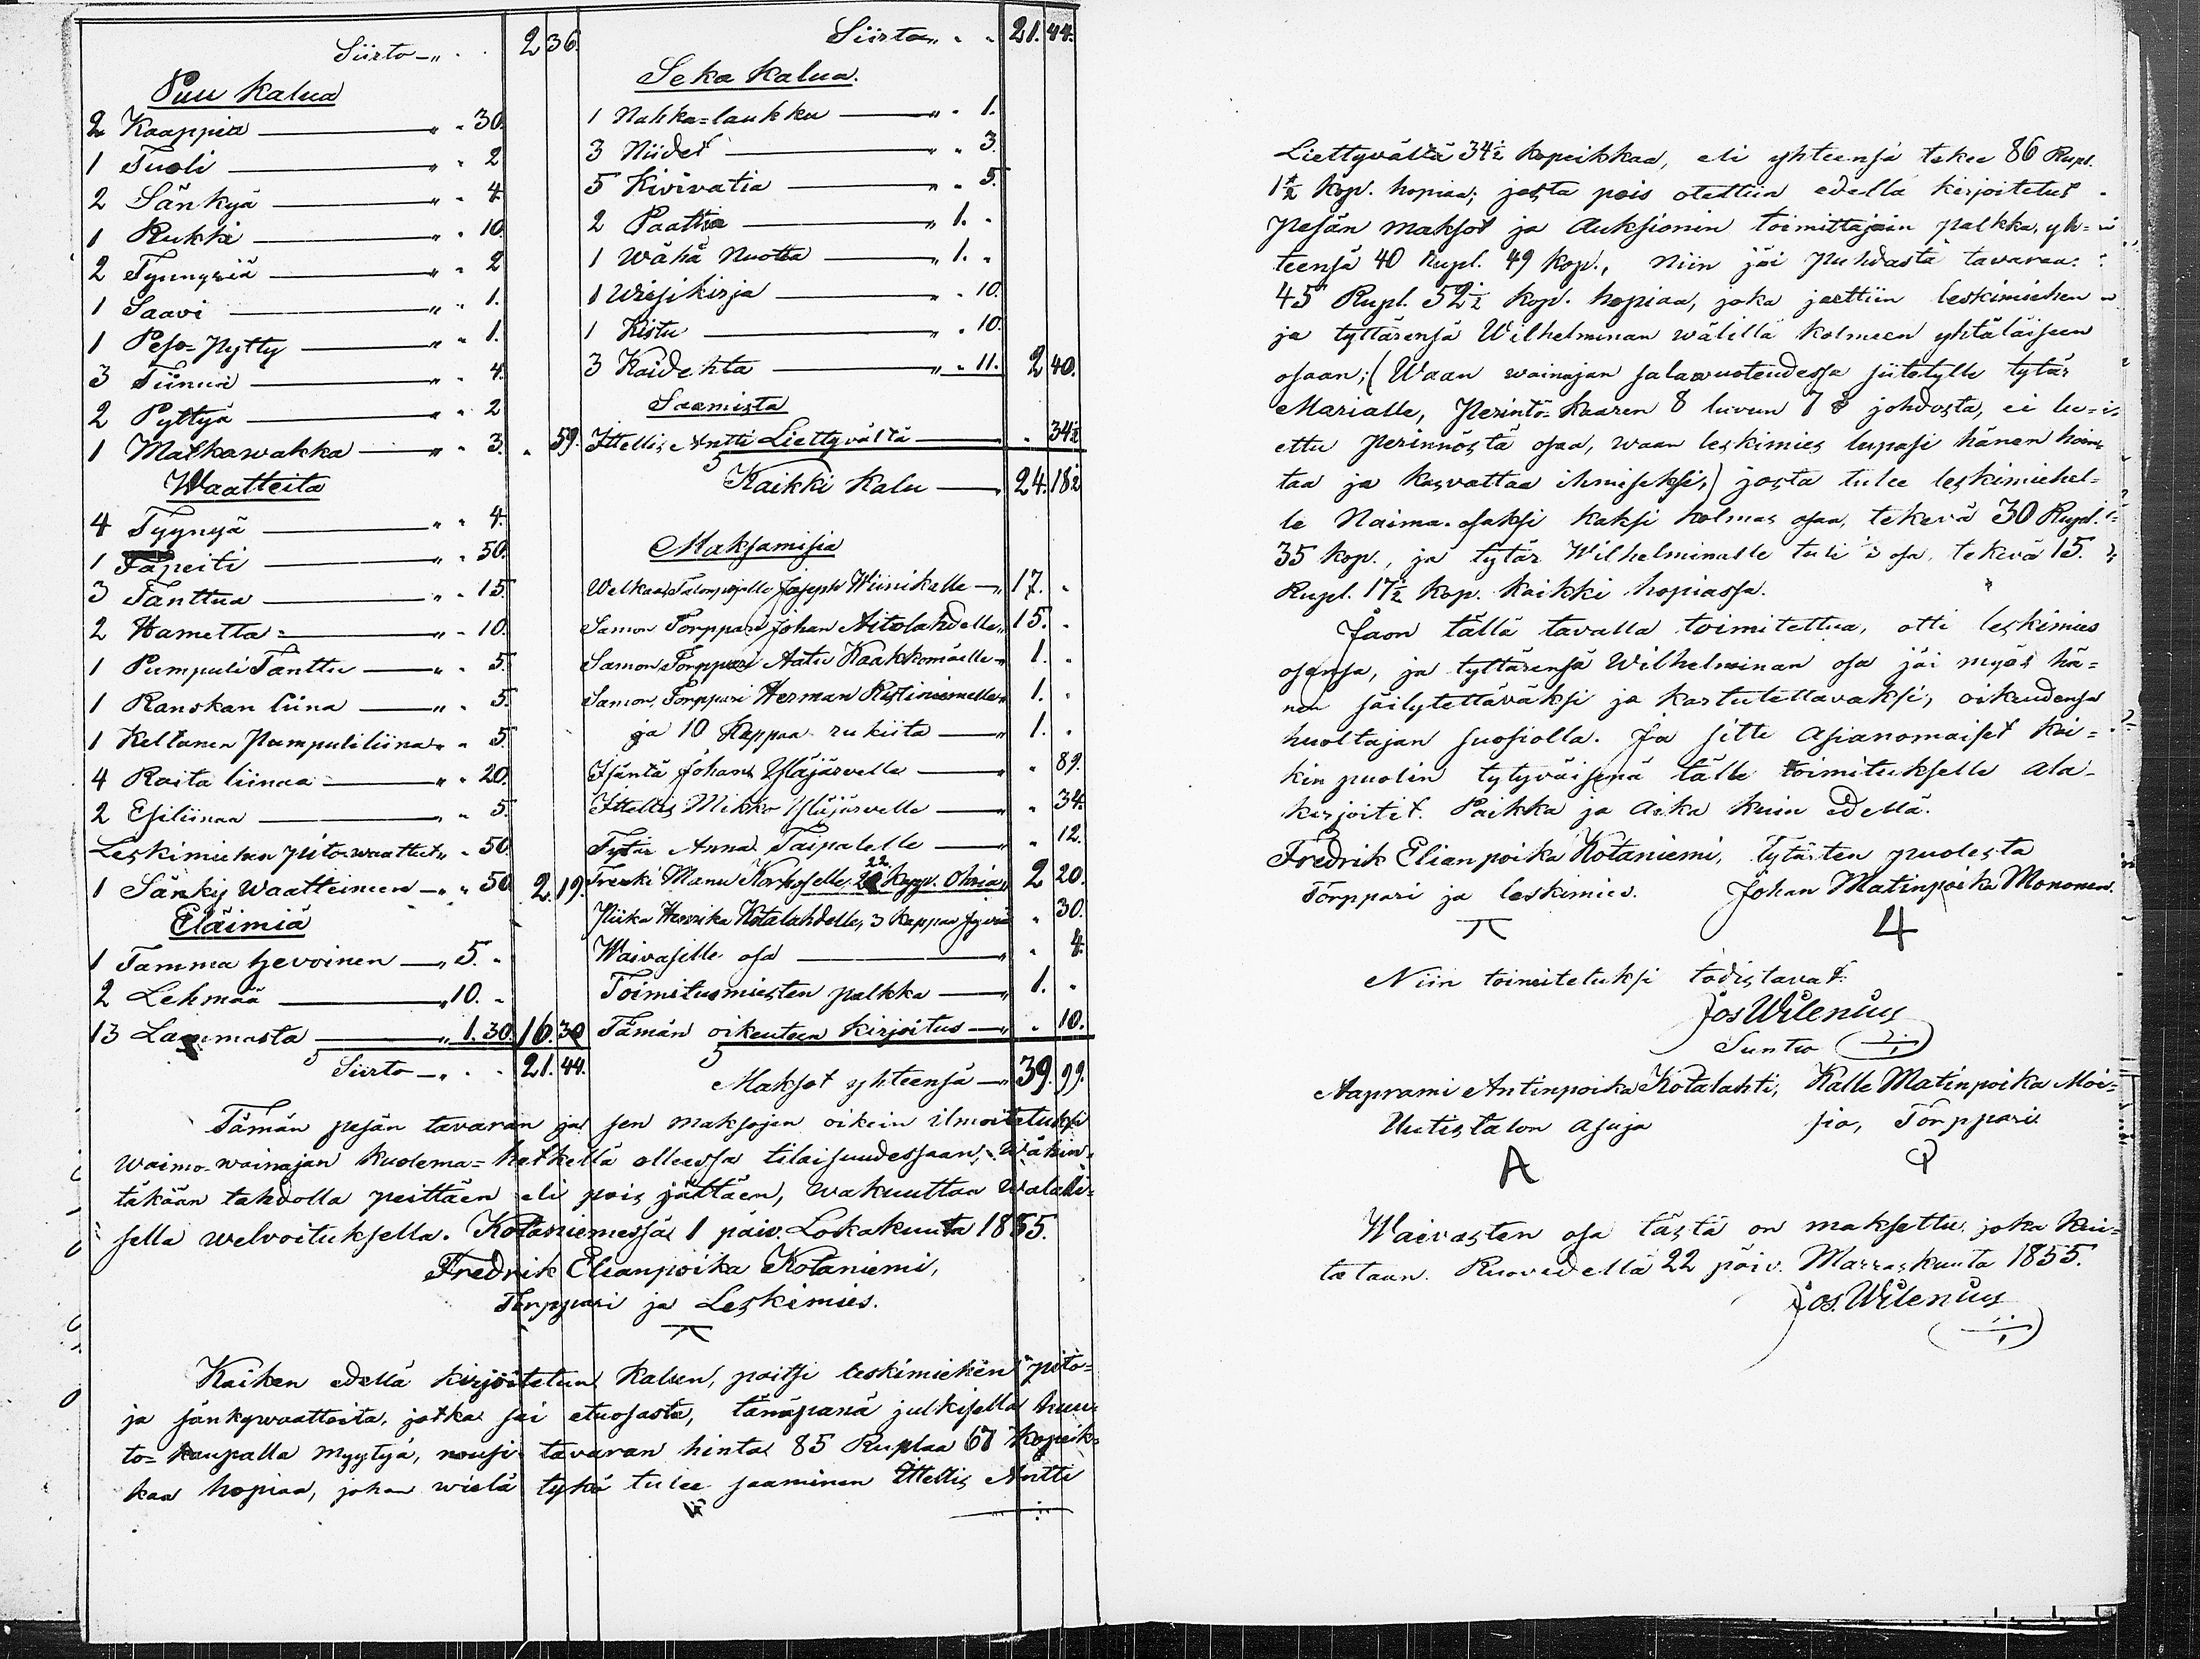 Siirto — „ . . 2 36.
Puu kalua
2 Kaappia — „ „ 30.
1 Tuoli — „ „ 2
2 Sänkyä — „ „ 4.
1 Rukki — „ „ 10.
2 Tynnyriä — „ „ 2
1 Saavi — „ „ 1.
1 Peso=pytty — „ „ 1.
3 Tiinua — „ „ 4.
2 Pyttyä — „ „ 2
1 Matkawakka — „ „ 3. „ 59.
Waatteita
4 Tyynyä — „ „ 4.
1 Täpeiti — „ „ 50.
3 Tänttua — „ „ 15.
2 Hametta — „ „ 10.
1 Pumpuli Tänttu — „ „ 5.
1 Ranskan liina — „ „ 5.
1 Keltanen pumpuliliina „ „ 5.
4 Raita liinaa — „ „ 20.
2 Esiliinaa — „ „ 5.
Leskimiehen pito-waattet „ „ 50.
1 Sänky waatteineen — „ „ 50 2. 19.
Eläimiä
1 Tamma hevoinen — „ 5. „
2 Lehmää — „ 10. „
13 Lammasta — „ 1. 30. 16. 30
Siirto — „ . . 21. 44.
Siirto „ . . 21. 44.
Seka kalua.
1 Nahka=laukku — „ „ 1.
3 Niidet — „ „ 3.
5 Kivivatia — „ „ 5.
2 Paattia — „ 1. „
1 Wähä Nuotta — „ 1. „
1 Wirsikirja — „ „ 10.
1 Kistu — „ „ 10.
3 Kaidehta — „ „ 11. 2 40.
Saamista
Ittellis Antti Liettyvältä — „ 34½
Kaikki kalu — „ 24. 18½
Maksamisia
Welkaa Talonpojalle Joseph Wiinikalle — „ 17. „
Samon Torppari Johan Aitolahdelle „ 15. „
Samon Torppari Aatu Kaakkomäelle „ 1. „
Samon, Torppari Herman Ristiniemelle „ 1. „
ja 10 Kappaa rukiita — „ 1. „
Isäntä Johan Yläjärvelle — „ „ 89.
Ittellis Mikko Yläjärvelle — „ „ 34.
Tytär Anna Taipalelle — „ „ 12.
Trenki Manu Korhoselle, 22 Kapp. Ohria „ 2 20.
Piika Henrika Kotalahdelle, 3 kappaa Jyviä „ 30.
Waivasille osa — „ „ 4.
Toimitusmiesten palkka — „ 1. „
Tämän oikeuteen kirjoitus — „ „ 10.
Maksot yhteensä — „ 39. 99.
Tämän pesän tavaran ja sen maksojen oikein ilmoitetuksi
waimo-wainajan kuolema=hetkellä ollessa tilaisuudessaan, Wähin-
täkään tahdolla peittäen eli pois jättäen, wakuuttaa Walalli-
sella welvoituksella. Kotaniemessä 1 päiv. Lokakuuta 1855.
Fredrik Elianpoika Kotaniemi,
Torppari ja Leskimies.
Kaiken edellä kirjoitetun kalun, paitsi leskimiehen pito=
ja sänkywaatteita, jotka sai etuosasta, tänäpänä julkisella huu-
to=kaupalla myytyä, nousi tavaran hinta 85 Ruplaa 67 kopeik-
kaa hopiaa, johon wielä tykö tulee saaminen Ittellis Antti
Liettyvältä 34½ kopeikkaa, eli yhteensä tekee 86 Rupl.
1½ kop. hopiaa; josta pois otettiin edellä kirjoitetut
pesän maksot ja Auksionin toimittajain palkka, yh=
teensä 40 Rupl. 49 kop., niin jäi puhdasta tavaraa
45 Rupl. 52½ kop. hopiaa, joka jaettiin leskimiehen
ja tyttärensä Wilhelminan wälillä kolmeen yhtäläiseen
osaan; (Waan wainajan salawuoteudessa siitetylle tytär
Marialle, Perintö=Kaaren 8 luvun 7 § johdosta, ei lu=
ettu perinnöstä osaa, waan leskimies lupasi hänen hoi-
taa ja kasvattaa ihmiseksi,) josta tulee leskimiehel=
le Naima-osaksi kaksi kolmas osaa, tekevä 30 Rupl.
35 kop., ja tytär Wilhelminalle tuli ⅓ osa, tekevä 15.
Rupl. 17½ kop. kaikki hopiassa.
Jaon tällä tavalla toimitettua, otti leskimies
osansa, ja tyttärensä Wilhelminan osa jäi myös hä=
nen säilytettäväksi ja kartutettavaksi, oikeudensa
huoltajan suosiolla. Ja sitte Asianomaiset kai=
kin puolin tytyväisenä tälle toimitukselle ala-
kirjoitit. Paikka ja aika kuin edellä.
Fredrik Elianpoika Kotaniemi, tytärten puolesta
Torppari ja leskimies. Johan Matinpoika Mononen.
4
Niin toimitetuksi todistavat:
Jos Wilenius
Suntio
Aaprami Antinpoika Kotalahti, Kalle Matinpoika Moi=
Uutistalon asuja sio, Torppari
A
Waivasten osa tästä on maksettu, joka kui-
tataan. Ruovedellä 22 päiv. Marraskuuta 1855.
Jos. Wilenius